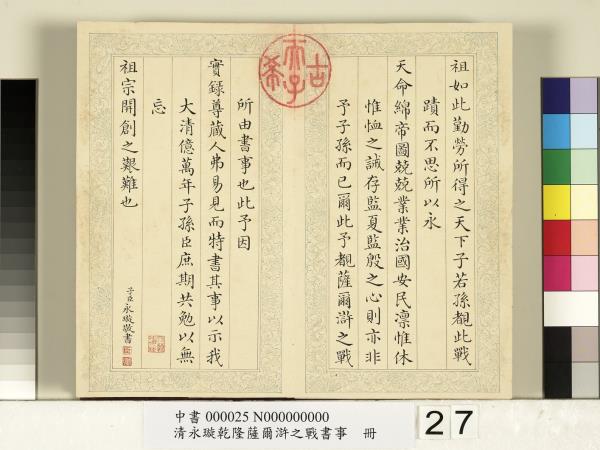 祖如此勤勞所得之天下子若孫覩此戰
蹟而不思所以永
天命綿帝圖兢兢業業治國安民凛惟休
惟恤之誠存監夏監殷之心則亦非
予子孫而已爾此予覩薩爾滸之戰
所由書事也此予因
實錄尊藏人弗易見而特書其事以示我
大清億萬年子孫臣庶期共勉以無
忘
祖宗開創之艱難也
子臣永璇敬書
古希天子
中書 000025 N000000000
清永璇乾隆薩爾滸之戰書事 冊
27